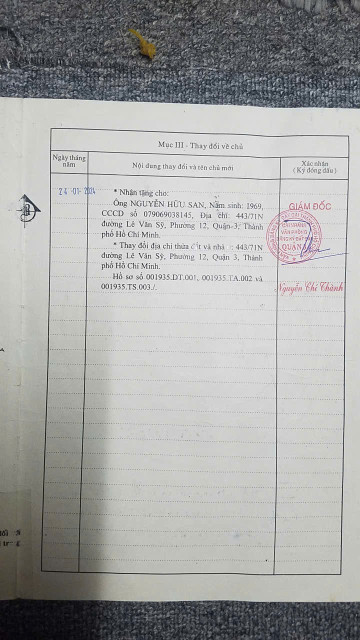 Mục III - Thay đổi về chủ
Ngày tháng năm
Nội dung thay đổi và tên chủ mới
Xác nhận
( Ký đóng dấu)
24 -01- 2024
* Nhận tặng cho:
Ông NGUYỄN HỮU SAN, Năm sinh: 1969,
CCCD số 079069038145, Địa chỉ: 443/71N
đường Lê Văn Sỹ, Phường 12, Quận 3, Thành
phố Hồ Chí Minh.
* Thay đổi địa chỉ thửa và nhà : 443/71N
đường Lê Văn Sỹ, Phường 12, Quận 3, Thành
phố Hồ Chí Minh.
Hồ sơ số 001935.DT.001, 001935.TA.002 và
001935.TS.003./.
GIÁM ĐỐC
CHI NHÁNH
VĂN PHÒNG
ĐĂNG KÝ ĐẤT ĐAI
QUẬN 3
Nguyễn Chí Thành